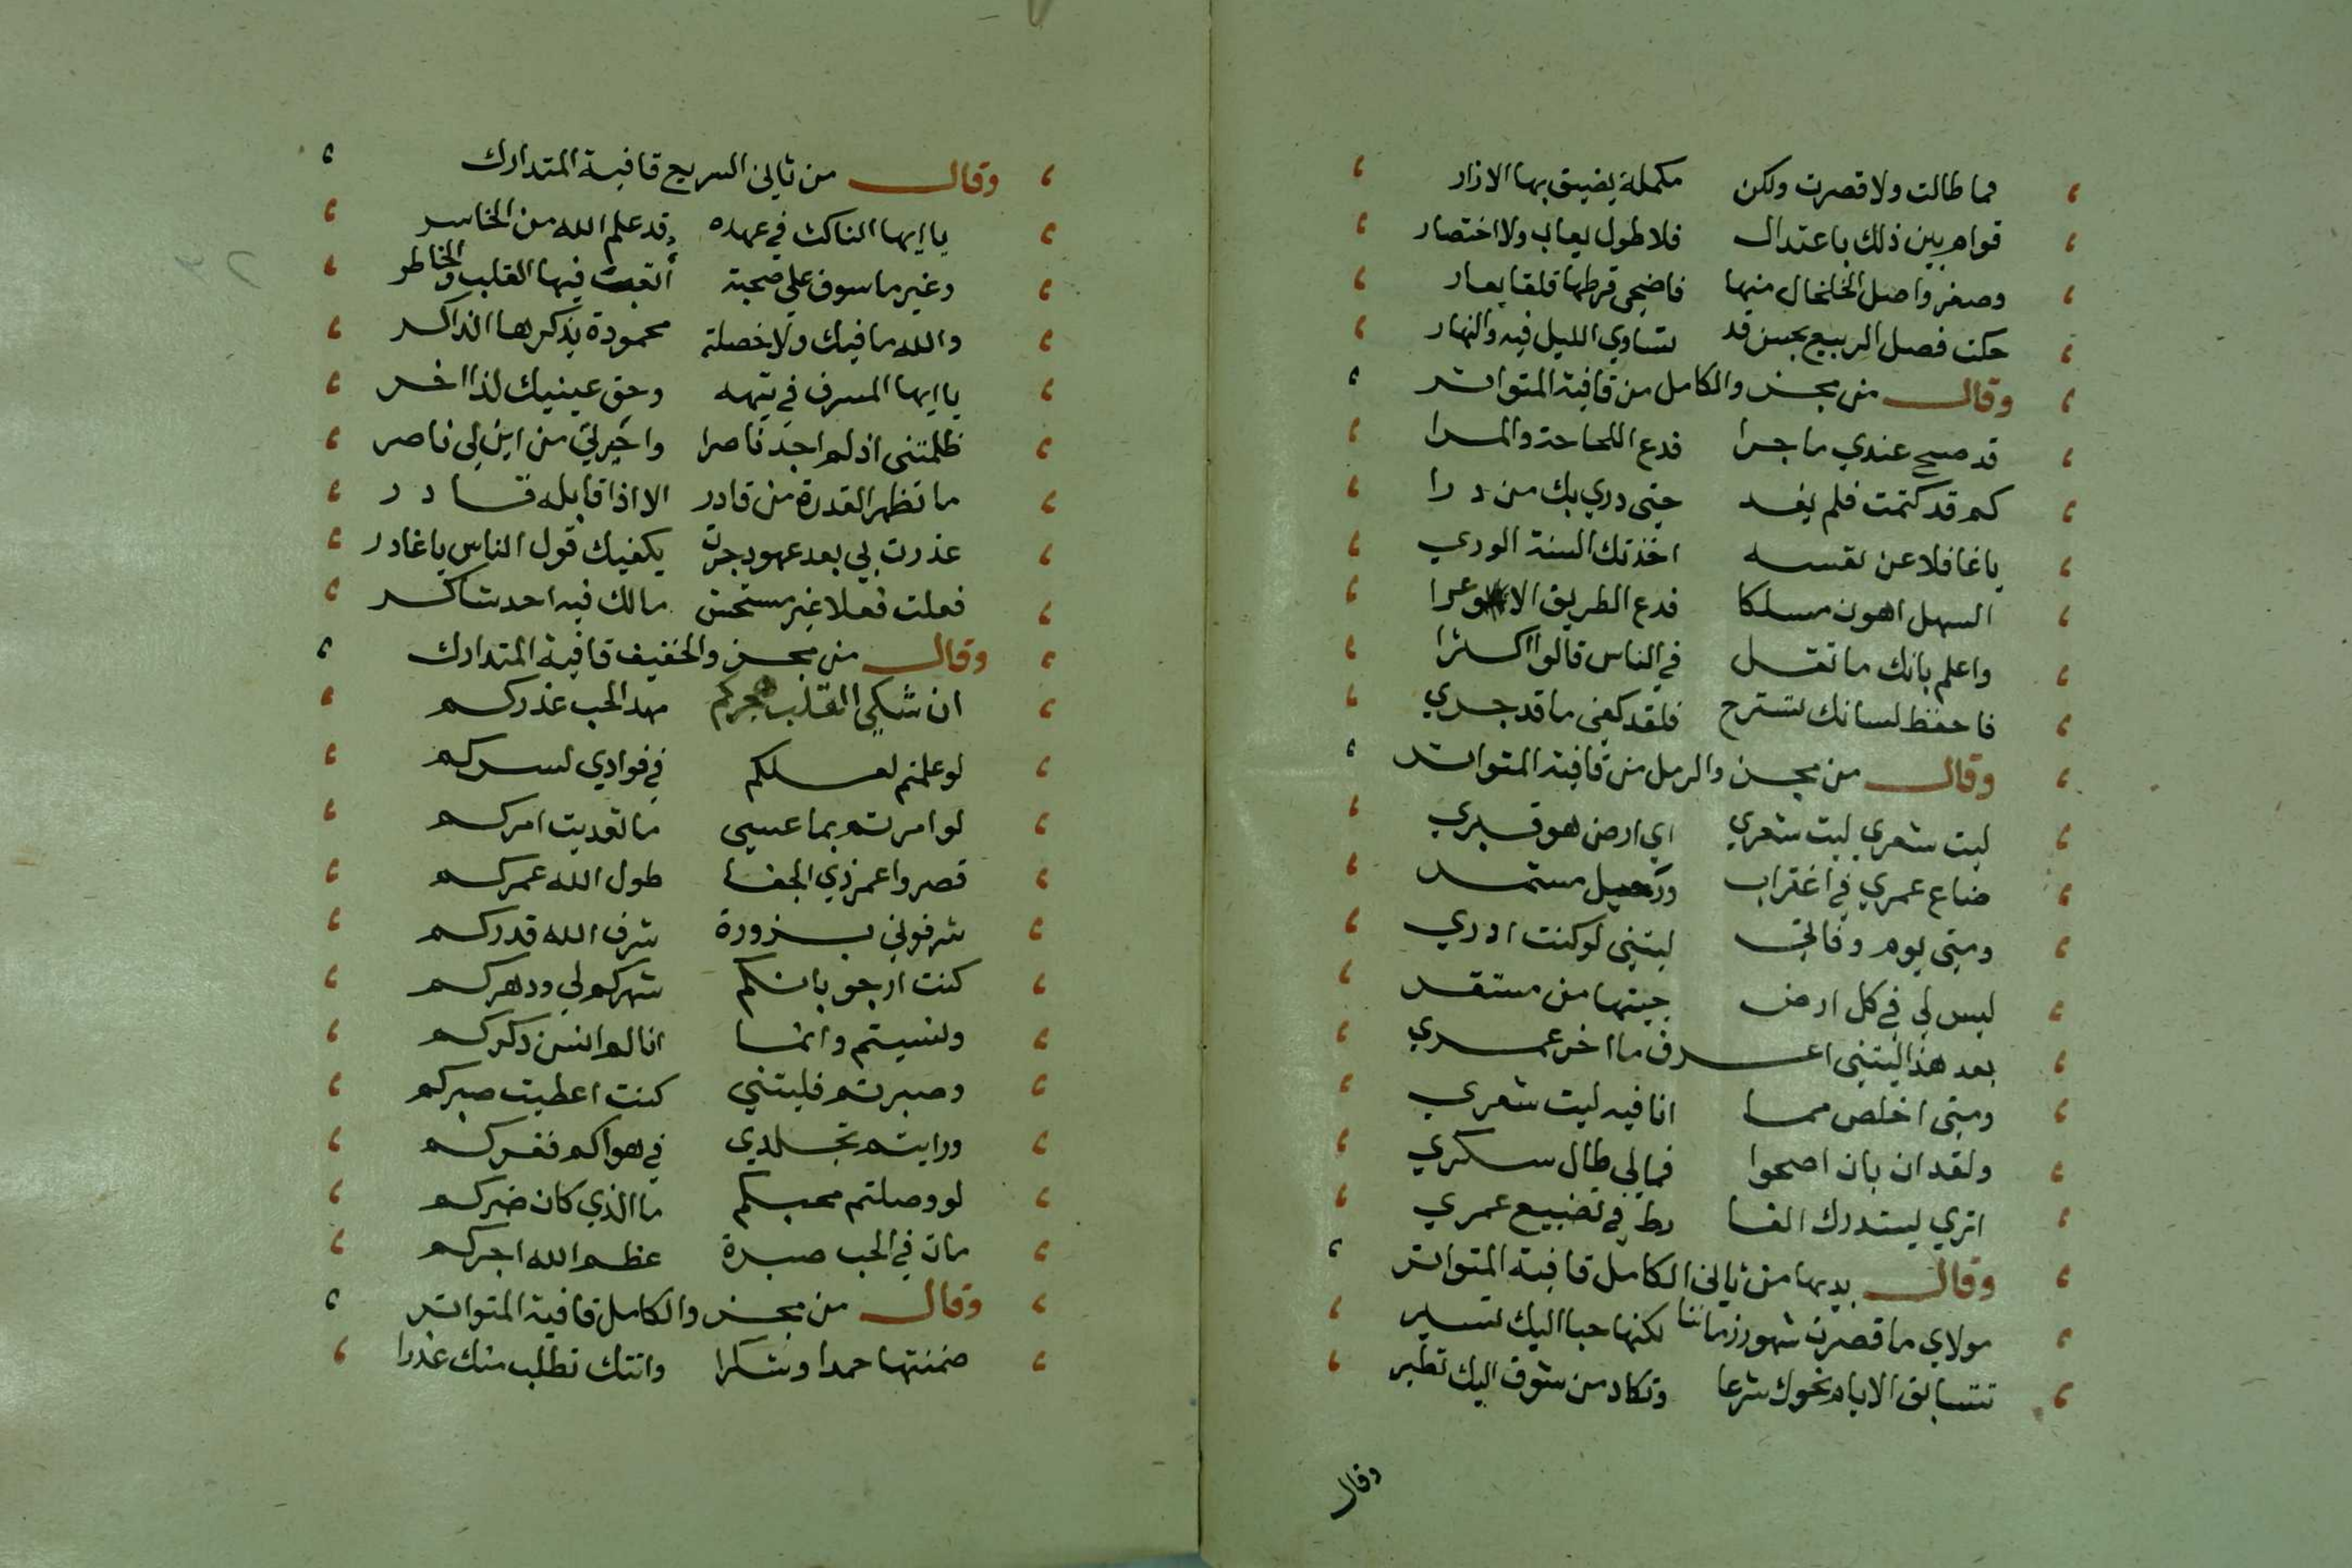 فما طالت ولا قصرت ولكن مكملة يضيق بها الازار
قوام بين ذلك باعتدال فلا طول يعاب ولا اختصار
وصغر واصل الخلخال منها فاضحى قرطها قلقا يعار
حكت فصل الربيع بحسن قد تساوي الليل فيه والنهار
وقال من مجزو الكامل من قافية المتواتر
قد صح عندي ما جرا فدع اللحاحة والمرا
كم قد كتمت فلم يفد حتى دري بك من درا
يا غافلا عن نفسه اخذتك السنة الوري
السهل اهون مسلكا فدع الطريق الاوعرا
واعلم بانك ما تقل في الناس قالوا اكثرا
فاحفظ لسانك تسترح فلقد كفى ما قد جري
وقال من مجزو الرمل من قافية المتواتر
ليت شعري ليت شعري اي ارض هو قبري
ضاع عمري في اغتراب ورحيل مستمر
ومتى يوم وفاتي ليتني لو كنت ادري
ليس لي في كل ارض جيتها من مستقر
بعد هذا ليتني اعرف ما اخر عمري
ومتى اخلص مما انا فيه ليت شعري
ولقد ان بان اصحوا فما لي طال سكري
اتري يستدرك الفا رط في تضييع عمري
وقال بديها من ثاني الكامل قافية المتواتر
مولاي ما قصرت شهور زماننا لكنها حبا اليك تسير
تتسابق الايام نحوك شرعا وتكاد من شوق اليك تطير
وقال
وقال من ثاني السريع قافية المتدارك
يا ايها الناكث في عهده قد علم الله من الخاسر
وغير ماسوف على صحبة أتعبت فيها القلب والخاطر
والله ما فيك ولا خصلة محمودة يذكرها الذاكر
يا ايها المسرف في تيهه وحق عينيك لذا اخر
ظلمتني اذ لم اجد ناصرا واحيرتي من اين لي ناصر
ما تظهر القدرة من قادر الا اذا قابله قادر
غدرت بي بعد عهود جرت يكفيك قول الناس يا غادر
فعلت فعلا غير مستحسن مالك فيه احد شاكر
وقال من مجزو الخفيف قافية المتدارك
ان شكي القلب هجركم مهد الحب عذركم
لو علمتم لعلكم في فوادي لسركم
لو امرتم بما عسى ما تعديت امركم
قصروا عمر ذي الجفا طول الله عمركم
شرفوني بزورة شرف الله قدركم
كنت ارجو بانكم شهركم لي ودهركم
ونسيتم وانما انا لم انس ذكركم
وصبرتم فليتني كنت اعطيت صبركم
ورايتم تجلدي في هواكم فغركم
لو وصلتم محبكم ما الذي كان ضركم
مات في الحب صبرة عظم الله اجركم
وقال من مجزو الكامل قافية المتواتر
ضمنتها حمدا وشكرا واتتك تطلب منك عذرا